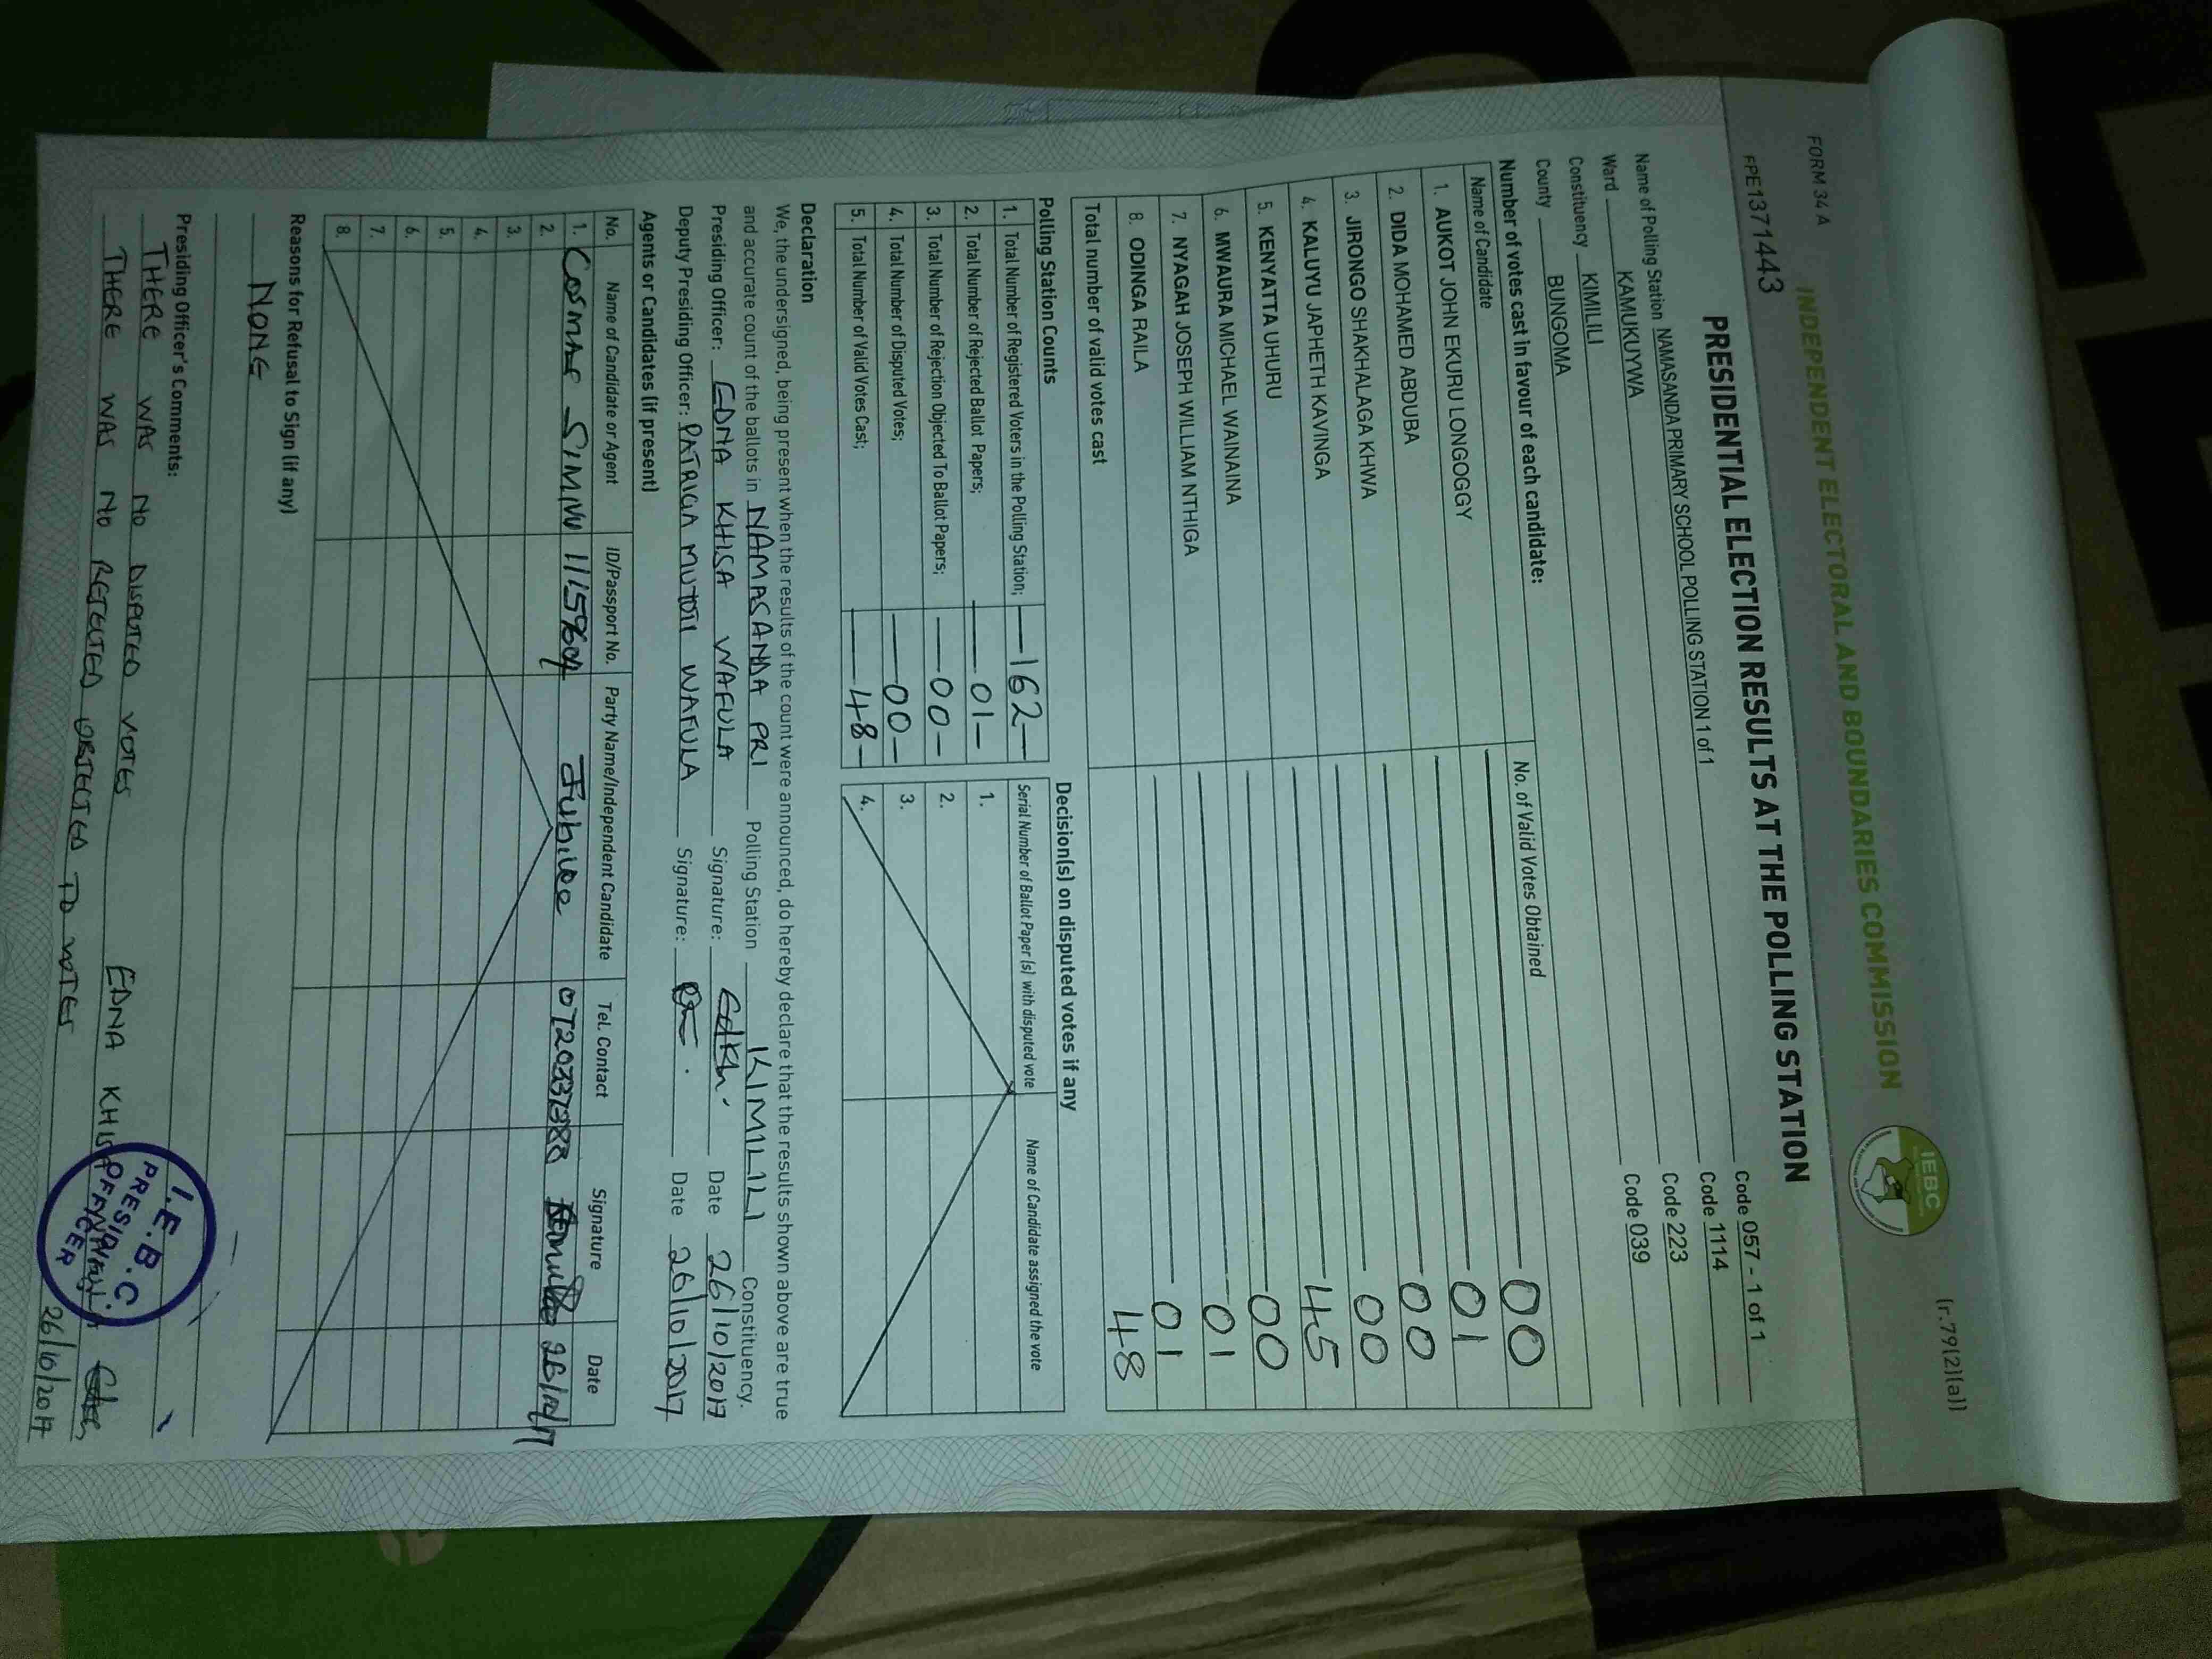 FORM 34 A
(r.79(2)(a))
INDEPENDENT ELECTORAL AND BOUNDARIES COMMISSION
IEBC
FPE1371443
PRESIDENTIAL ELECTION RESULTS AT THE POLLING STATION
Name of Polling Station NAMASANDA PRIMARY SCHOOL POLLING STATION 1 of 1 Code 057 - 1 of 1
Ward KAMUKUYWA Code 1114
Constituency KIMILILI Code 223
County BUNGOMA Code 039
Number of votes cast in favour of each candidate:
Name of Candidate No. of Valid Votes Obtained
1. AUKOT JOHN EKURU LONGOGGY 00
2. DIDA MOHAMED ABDUBA 01
3. JIRONGO SHAKHALAGA KHWA 00
4. KALUYU JAPHETH KAVINGA 00
5. KENYATTA UHURU 45
6. MWAURA MICHAEL WAINAINA 00
7. NYAGAH JOSEPH WILLIAM NTHIGA 01
8. ODINGA RAILA 01
Total number of valid votes cast 48
Polling Station Counts
1. Total Number of Registered Voters in the Polling Station; 162
2. Total Number of Rejected Ballot Papers; 01
3. Total Number of Rejection Objected To Ballot Papers; 00
4. Total Number of Disputed Votes; 00
5. Total Number of Valid Votes Cast; 48
Decision(s) on disputed votes if any
Serial Number of Ballot Paper (s) with disputed vote Name of Candidate assigned the vote
1.
2.
3.
4.
Declaration
We, the undersigned, being present when the results of the count were announced, do hereby declare that the results shown above are true
and accurate count of the ballots in NAMASANDA PRI Polling Station KIMILILI Constituency.
Presiding Officer: EDNA KHISA WAFULA Signature: Date 26/10/2017
Deputy Presiding Officer: PATRICIA MUTOTI WAFULA Signature: Date 26/10/2017
Agents or Candidates (if present)
No. Name of Candidate or Agent ID/Passport No. Party Name/Independent Candidate Tel. Contact Signature Date
1. Cosmas Jubilee 26/10/17
2.
3.
4.
5.
6.
7.
8.
Reasons for Refusal to Sign (if any)
NONE
Presiding Officer's Comments:
THERE WAS NO DISPUTED VOTES
THERE WAS NO REJECTED OBJECTED TO VOTES
EDNA KHISA
26/10/2017
I.E.B.C.
PRESIDING
OFFICER